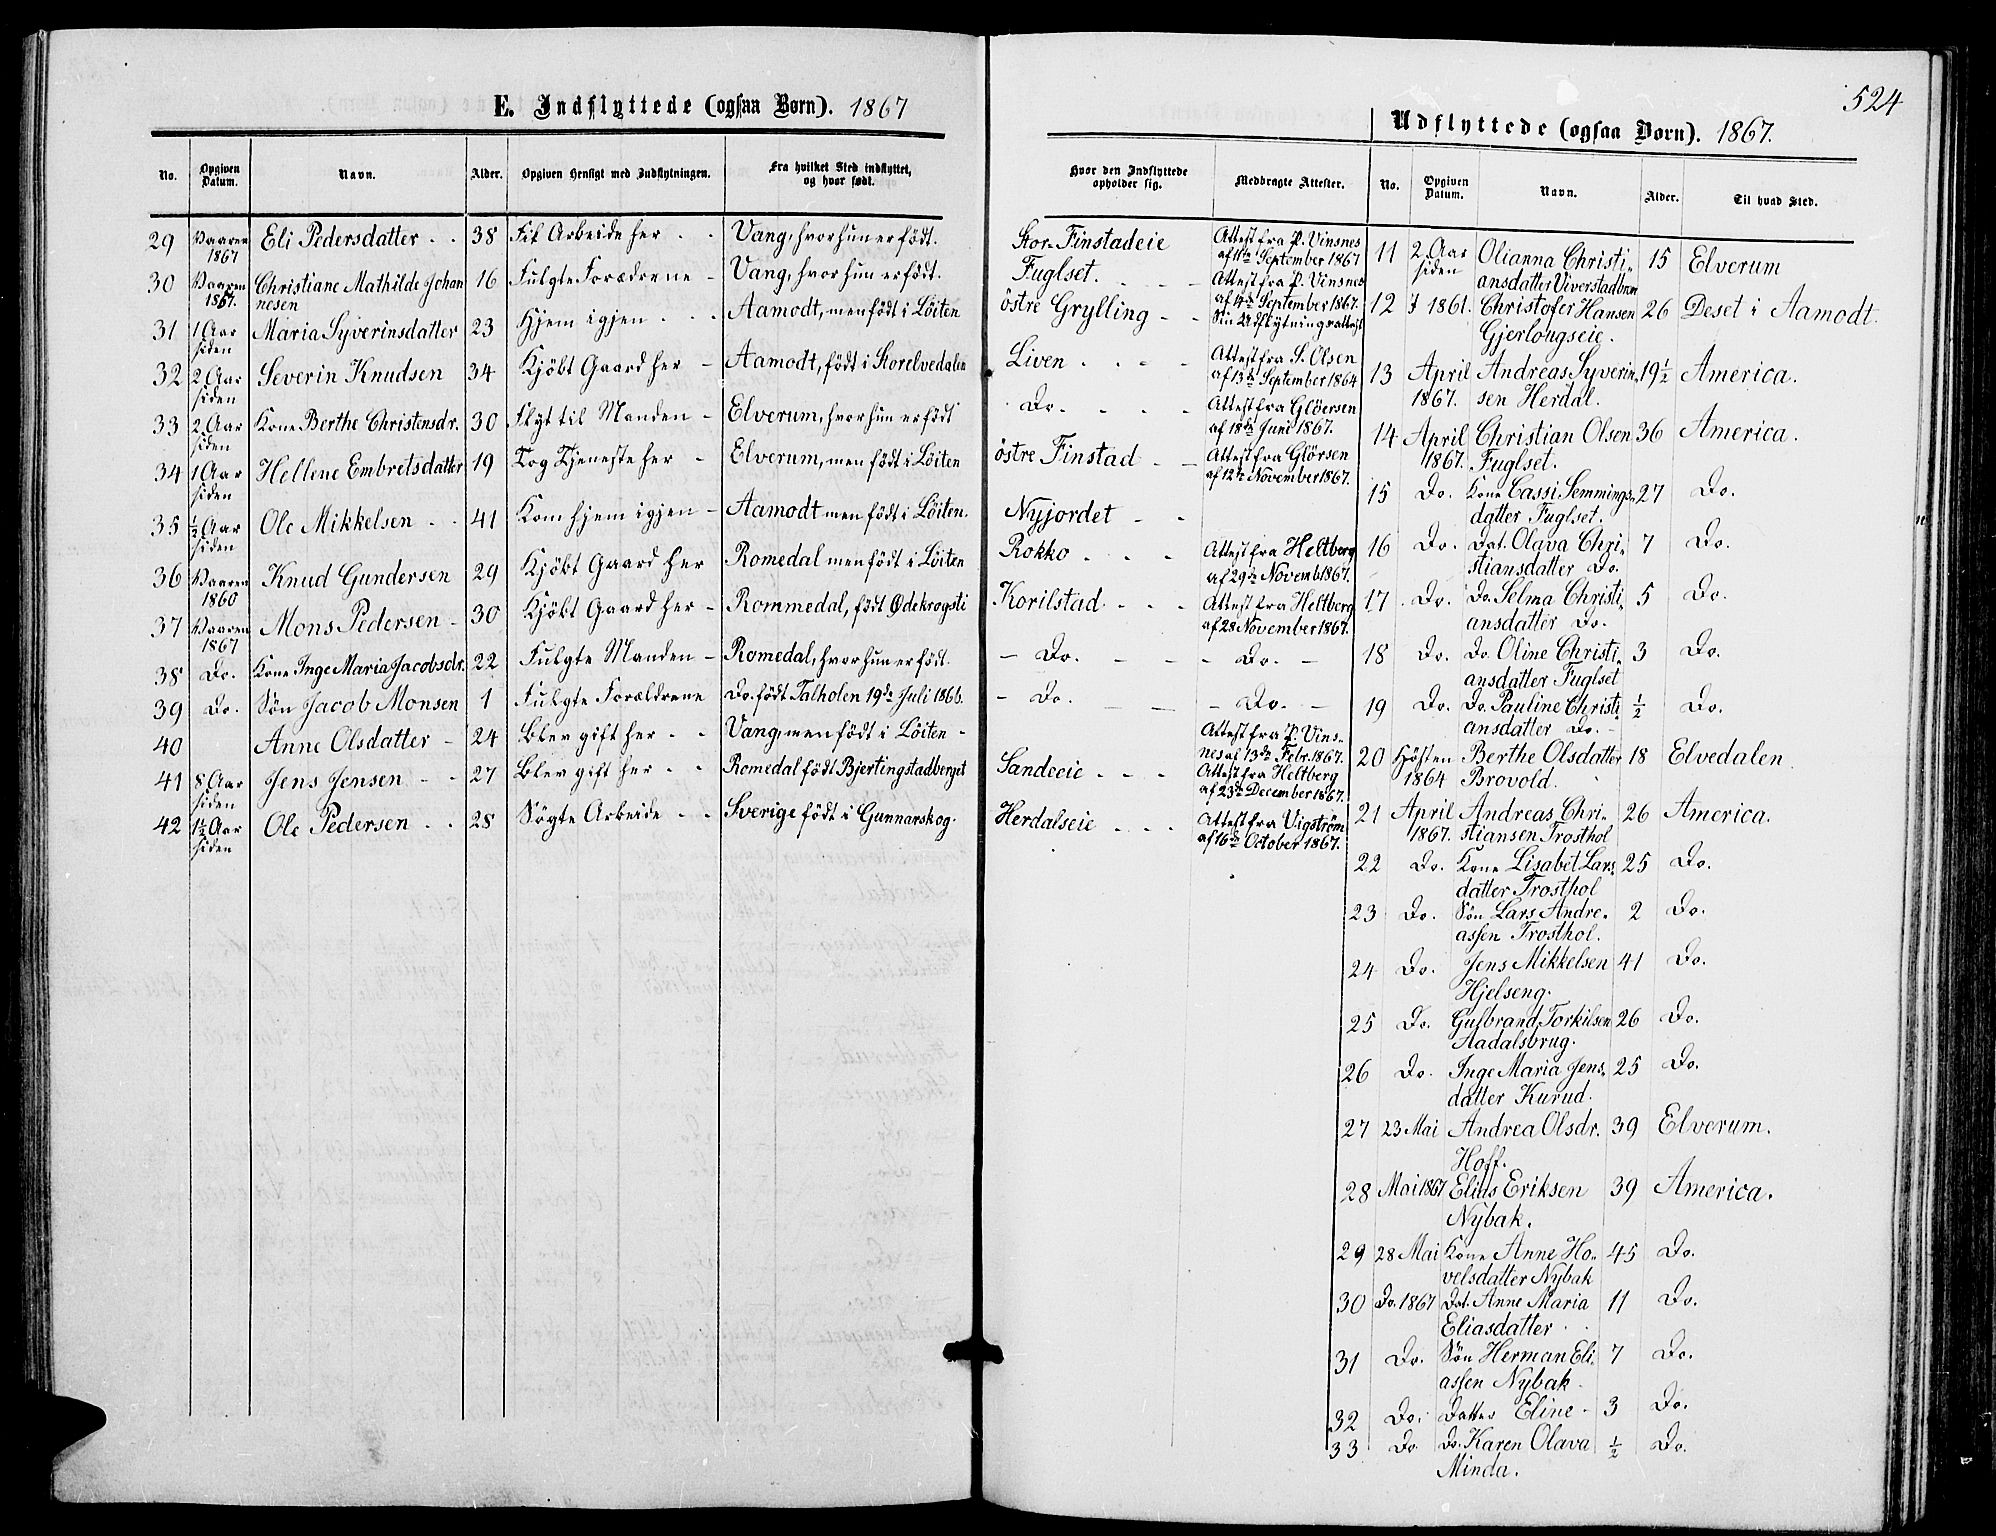 E. Indflyttede (ogsaa Børn). 1867
No. Opgiven Datum. Navn. Alder. Opgiven Hensigt med Indflytningen. Fra hvilket Sted indflyttet, og hvor født.
29 Vaaren 1867 Eli Pedersdatter - - 38 Fik Arbeide her - - Vang, hvor hun er født.
30 Vaaren 1867. Christiane Mathilde Johannesen 16 Fulgte Forældrene - Vang, hvor hun er født.
31 1 Aar siden Maria Syverinsdatter 23 Hjem igjen - - - Aamodt, men født i Löiten
32 2 Aar siden Severin Knudsen 34 Kjöbt Gaard her - Aamodt, født i Storelvedalen
33 2 Aar siden Kone Berthe Christensdr. 30 Flyt til Manden - Elverum, hvor hun er født
34 1 Aar siden Hellene Embretsdatter 19 Tog Tjeneste her - Elverum, men født i Löiten
35 ½ Aar siden Ole Mikkelsen - - 41 Kom hjem igjen - Aamodt men født i Löiten.
36 Vaaren 1860 Knud Gundersen 29 Kjöbt Gaard her Romedal men født i Löiten
37 Vaaren 1867 Mons Pedersen - 30 Kjöbt Gaard her - Rommedal, født Ødekrogsti
38 Do. Kone Inge Maria Jacobsdr. 22 Fulgte Manden - Romedal, hvor hun er født.
39 Do. Søn Jacob Monsen 1 Fulgte Forældrene Do. født Talholen 19de Juli 1866.
40 Anne Olsdatter - 24 Blev gift her - - Vang, men født i Löiten -
41 8 Aar siden Jens Jensen - - 27 Blev gift her - - Romedal født Bjertingstadberget
42 1½ Aar siden Ole Pedersen - - 28 Søgte Arbeide - - Sverige født i Gunnarskog.
524
Udflyttede (ogsaa Børn). 1867.
Hvor den Indflyttede opholder sig. Medbragte Attester. No. Opgiven Datum. Navn. Alder. Til hvad Sted.
Stor-Finstadeie Attest fra P. Vinsnes af 11te September 1867
Fuglset. - - - Attest fra P. Vinsnes af 4de September 1867.
östre Grylling - - Sin Udflytningsattest
Liven - - - - Attest fra S. Olsen af 13de September 1864
Do. - - - - Attest fra Glöersen af 18de Juni 1867.
östre Finstad - - Attest fra Glörsen af 12te November 1867.
Nyjordet - -
Rokko - - - Attest fra Heltberg af 29de Novemb 1867.
Korilstad - - - Attest fra Heltberg af 28 November 1867.
- Do. - - - Do. -
- Do. - - - Do. -
Attest fra P. Vinsnes af 13de Febr. 1867.
Sandeeie - - - Attest fra Heltberg af 23de December 1867.
Herdalseie - - - Attest fra Vigström af 16de October 1867.
11 2 Aar siden Olianna Christiansdatter Viverstadbrun 15 Elverum
12 I 1861. Christofer Hansen Gjerlongseie. 26 Deset i Aamodt.
13 April 1867. Andreas Syverinsen Herdal. 19½ America.
14 April 1867. Christian Olsen Fuglset. 36 America.
15 Do. Kone Cassi Semmingsdatter Fuglset. 27 Do.
16 Do. Dat. Olava Christiansdatter Do. 7 Do.
17 Do. Do. Selma Christiansdatter Do. 5 Do.
18 Do. Do. Oline Christiansdatter Fuglset 3 Do.
19 Do. Do. Pauline Christiansdatter Do. - ½ Do.
20 Høsten 1864 Berthe Olsdatter Brovold. 18 Elvedalen
21 April 1867. Andreas Christiansen Trosthol 26 America.
22 Do. Kone Lisabet Larsdatter Trosthol 25 Do.
23 Do. Søn Lars Andreassen Trosthol. 2 Do.
24 Do. Jens Mikkelsen Hjelseng. 41 Do.
25 Do. Gulbrand Torkilsen Aadalsbrug. 26 Do.
26 Do. Inge Maria Jensdatter Kurud. 25 Do.
27 23 Mai Andrea Olsdr. Hoff. 39 Elverum.
28 Mai 1867 Elias Eriksen Nybak. 39 America.
29 28 Mai Kone Anne Hovelsdatter Nybak 45 Do.
30 Do. 1867 Dat. Anne Maria Eliasdatter 11 Do.
31 Do. Søn Herman Eliassen Nybak 7 Do.
32 Do. Datter Eline - 3 Do.
33 Do Do. Karen Olava Minda. ½ Do.